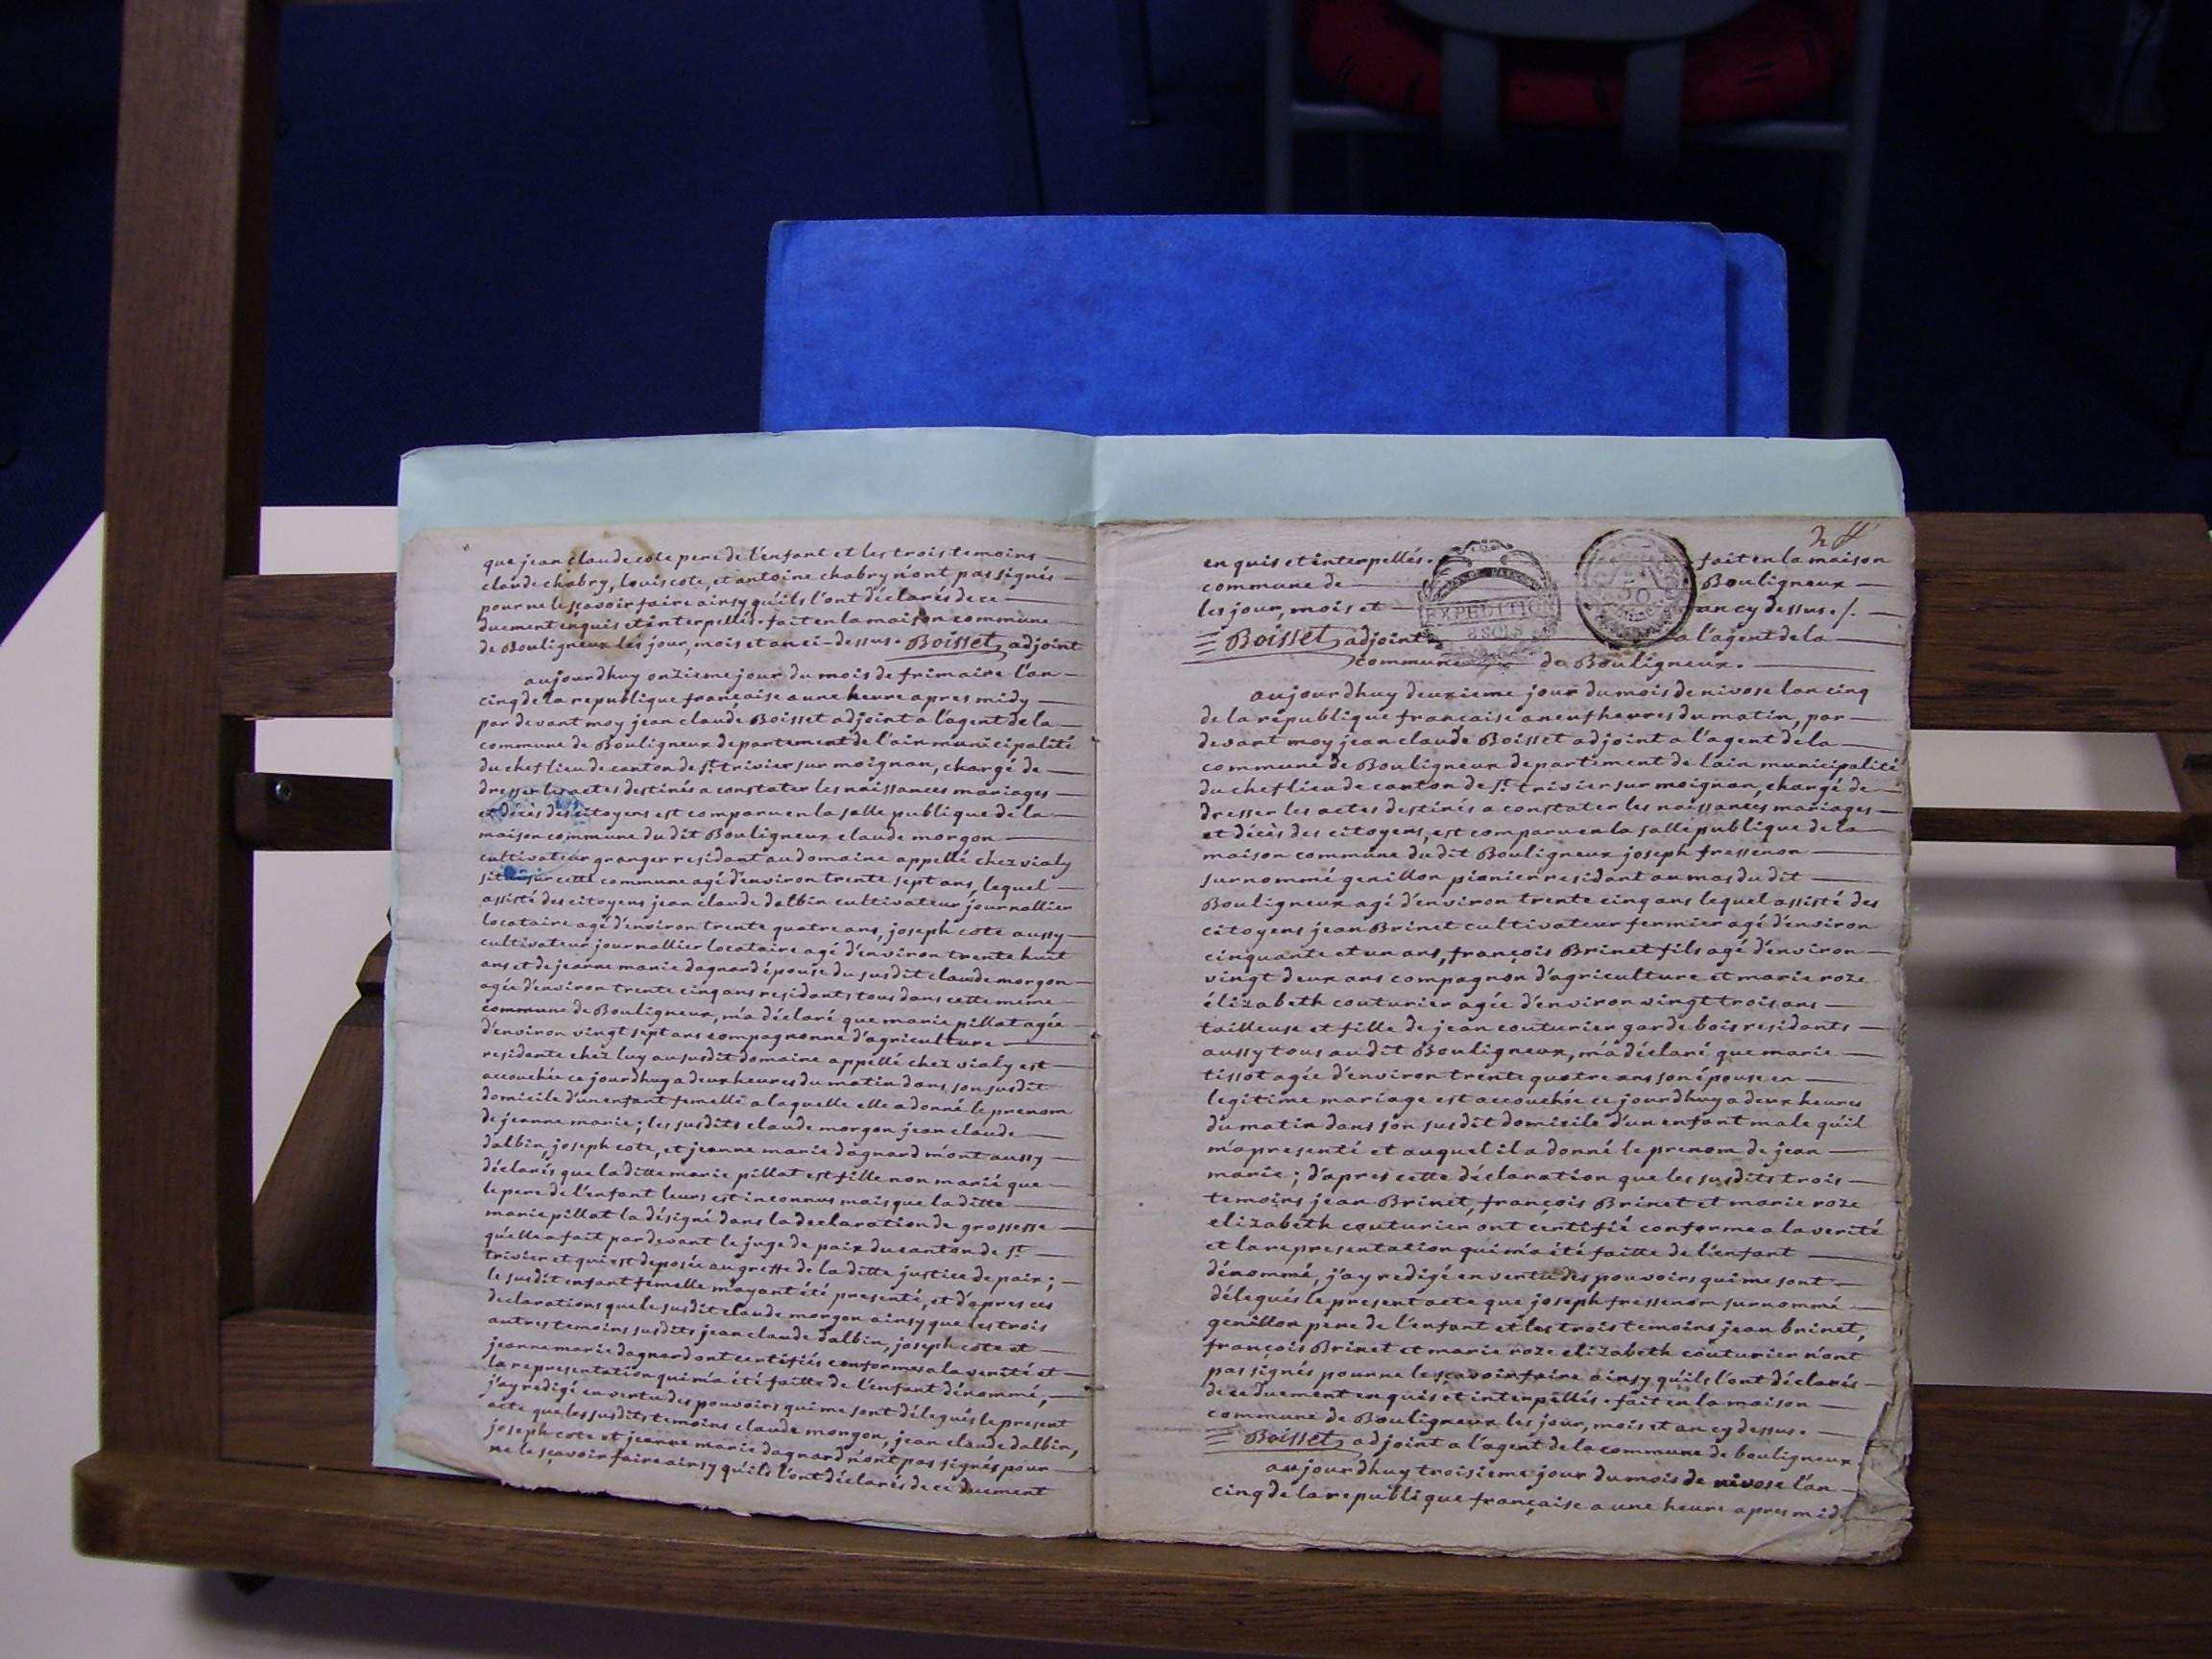 que jean claude cote pere de l'enfant et les trois temoins
claude chabry, louis cote, et antoine chabry n'ont pas signés
pour ne le sçavoir faire ainsy qu'ils l'ont déclarés de ce
duement enquis et interpellés. fait en la maison commune
de Bouligneux les jour, mois et an ci-dessus. Boisset adjoint
aujourdhuy onzieme jour du mois de frimaire l'an
cinq de la republique française a une heure apres midy
par devant moy jean claude Boisset adjoint a l'agent de la
commune de Bouligneux departement de l'ain municipalité
du chef lieu de canton de st. trivier sur moignan, chargé de
dresser les actes destinés a constater les naissances mariages
et décès des citoyens est comparu en la salle publique de la
maison commune du dit Bouligneux claude morgon
cultivateur granger residant au domaine appellé chez vialy
situé sur cette commune agé d'environ trente sept ans, lequel
assisté des citoyens jean claude dalbin cultivateur journallier
locataire agé d'environ trente quatre ans, joseph cote aussy
cultivateur journallier locataire agé d'environ trente huit
ans et de jeanne marie dagnard épouse du susdit claude morgon
agée d'environ trente cinq ans residants tous dans cette meme
commune de Bouligneux, m'a déclaré que marie pillat agée
d'environ vingt sept ans compagnonne d'agriculture
residante chez luy au susdit domaine appellé chez vialy est
accouchée ce jourdhuy a deux heures du matin dans son susdit
domicile d'un enfant femelle a laquelle elle a donné le prenom
de jeanne marie; les susdits claude morgon jean claude
dalbin, joseph cote, et jeanne marie dagnard m'ont aussy
déclarés que la ditte marie pillat est fille non marié que
le pere de l'enfant leurs est inconnus mais que la ditte
marie pillat la désigné dans la declaration de grossesse
qu'elle a fait par devant le juge de paix du canton de st.
trivier et qui est deposée au greffe de la ditte justice de paix;
le susdit enfant femelle m'ayant été presenté, et d'apres ces
declarations que le susdit claude morgon ainsy que les trois
autres temoins susdits jean claude dalbin, joseph cote et
jeanne marie dagnard ont certifiés conformes a la verité et
la representation qui m'a été faitte de l'enfant dénommé,
j'ay redigé en vertu des pouvoirs qui me sont délegués le present
acte que les susdits temoins claude morgon, jean claude dalbin,
joseph cote et jeanne marie dagnard n'ont pas signés pour
ne le sçavoir faire ainsy qu'ils l'ont déclarés de ce duement
enquis et interpellés. fait en la maison
commune de Bouligneux
les jour, mois et an cy dessus./.
EXPEDITION
8 SOLS
50
Boisset adjoint a l'agent de la
commune de Bouligneux.
aujourdhuy deuxieme jour du mois de nivose lan cinq
de la republique francaise a neuf heures du matin, par
devant moy jean claude Boisset adjoint a l'agent de la
commune de Bouligneux departement de lain municipalité
du chef lieu de canton de st. trivier sur moignan, chargé de
dresser les actes destinés a constater les naissances mariages
et décès des citoyens, est comparu en la salle publique de la
maison commune du dit Bouligneux joseph fressenon
surnommé genillon pionier residant au mas du dit
Bouligneux agé d'environ trente cinq ans lequel assisté des
citoyens jean Brinet cultivateur fermier agé d'environ
cinquante et un ans, françois Brinet fils agé d'environ
vingt deux ans compagnon d'agriculture et marie roze
élizabeth couturier agée d'environ vingt trois ans
tailleuse et fille de jean couturier garde bois residants
aussy tous au dit Bouligneux, m'a déclaré que marie
tissot agée d'environ trente quatre ans son épouse en
legitime mariage est accouchée ce jourdhuy a deux heures
du matin dans son susdit domicile d'un enfant male qu'il
m'a presenté et auquel il a donné le prenom de jean
marie; d'apres cette déclaration que les susdits trois
temoins jean Brinet, françois Brinet et marie roze
elizabeth couturier ont certifié conforme a la verité
et la representation qui m'a été faitte de l'enfant
dénommé, j'ay redigé en vertu des pouvoirs qui me sont
délegués le present acte que joseph fressenon surnommé
genillon pere de l'enfant et les trois temoins jean brinet,
françois Brinet et marie roze elizabeth couturier n'ont
pas signés pour ne le sçavoir faire ainsy qu'ils l'ont déclarés
de ce duement enquis et interpellés. fait en la maison
commune de Bouligneux les jour, mois et an cy dessus.
Boisset adjoint a l'agent de la commune de bouligneux
aujourdhuy troisieme jour du mois de nivose l'an
cinq de la republique française a une heure apres mid